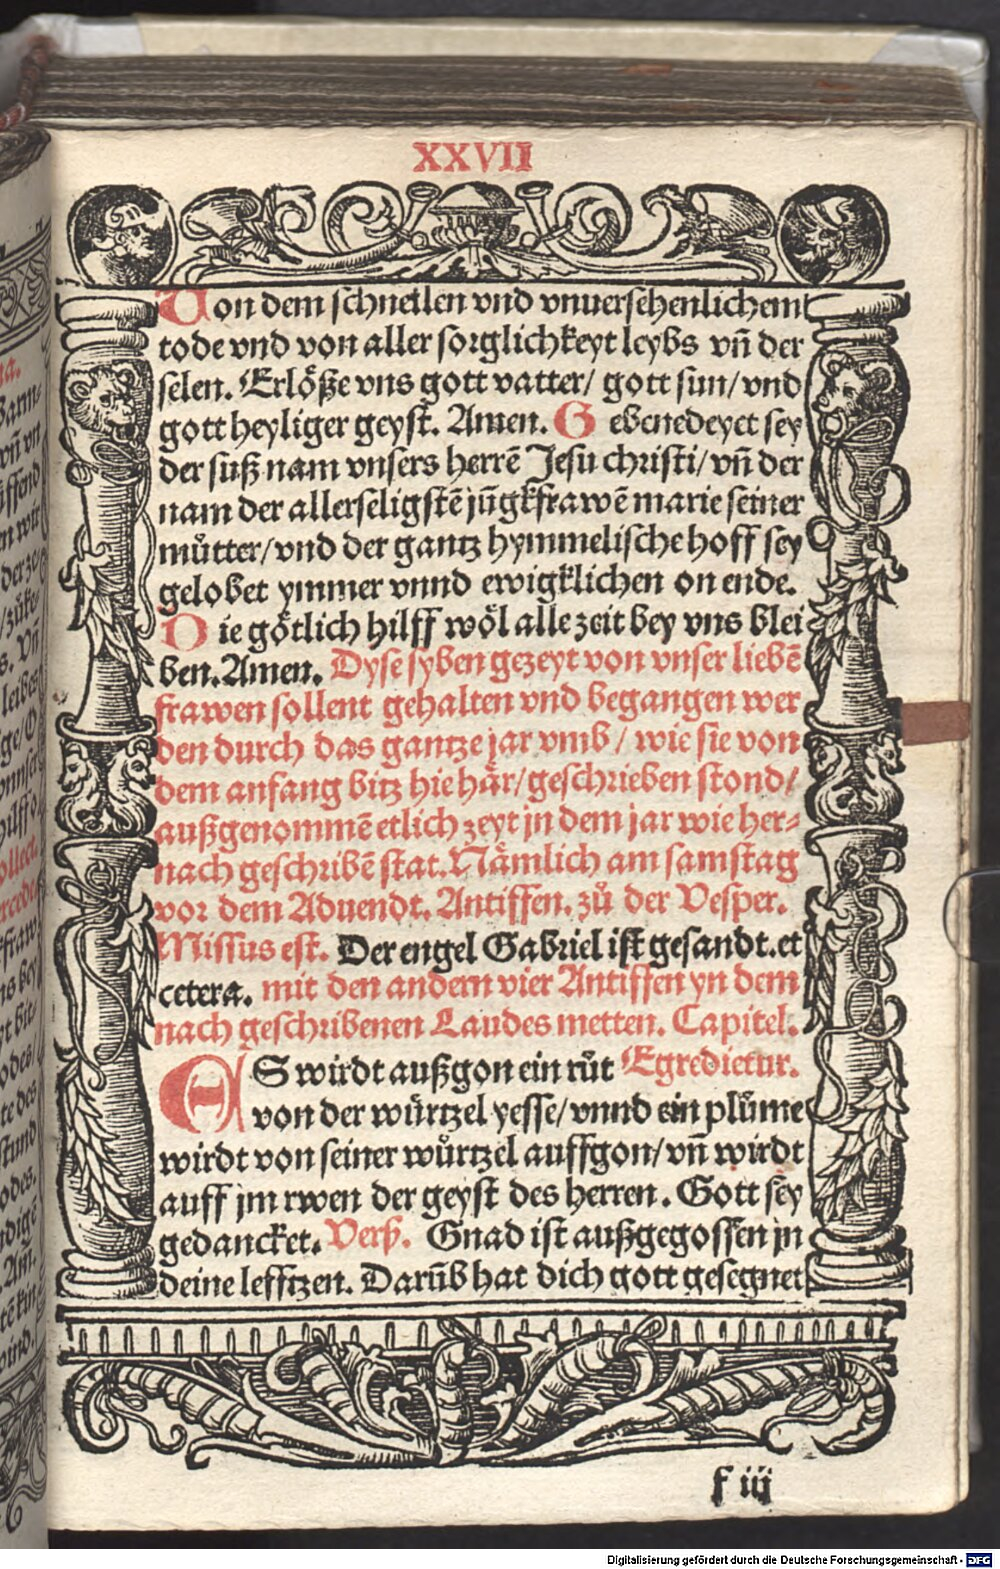 XXVII
Von dem schnellen vnd vnuersehenlichem
tode vnd von aller sorglichkeyt leybs vñ der
selen. Erlöße vns gott vatter/ gott sun/ vnd
gott heyliger geyst. Amen. Gebenedeyet sey
der suß nam vnsers herrē Jesu christi/ vñ der
nam der allerseligstē jūgkfrawē marie seiner
můtter/ vnd der gantz hymmelische hoff sey
gelobet ymmer vnnd ewigklichen on ende.
Die götlich hilff wöl alle zeit bey vns blei
ben. Amen. Dyse syben gezeyt von vnser liebē
frawen sollent gehalten vnd begangen wer
den durch das gantze jar vmb/ wie sie von
dem anfang bitz hie här/ geschrieben stond/
außgenommē etlich zeyt jn dem jar wie her-
nach geschribē stat. Nämlich am samstag
vor dem Aduendt. Antiffen. zů der Vesper.
Missus est. Der engel Gabriel ist gesandt. et
cetera. mit den andern vier Antiffen yn dem
nach geschribenen Laudes metten. Capitel.
ES wirdt außgon ein růt Egredietur.
von der würtzel yesse/ vnnd ein plůme
wirdt von seiner wůrtzel auffgon/ vñ wirdt
auff jm rwen der geyst des herren. Gott sey
gedancket. Verß. Gnad ist außgegossen jn
deine lefftzen. Darūb hat dich gott gesegnet
f iij
Digitalisierung gefördert durch die Deutsche Forschungsgemeinschaft - DFG